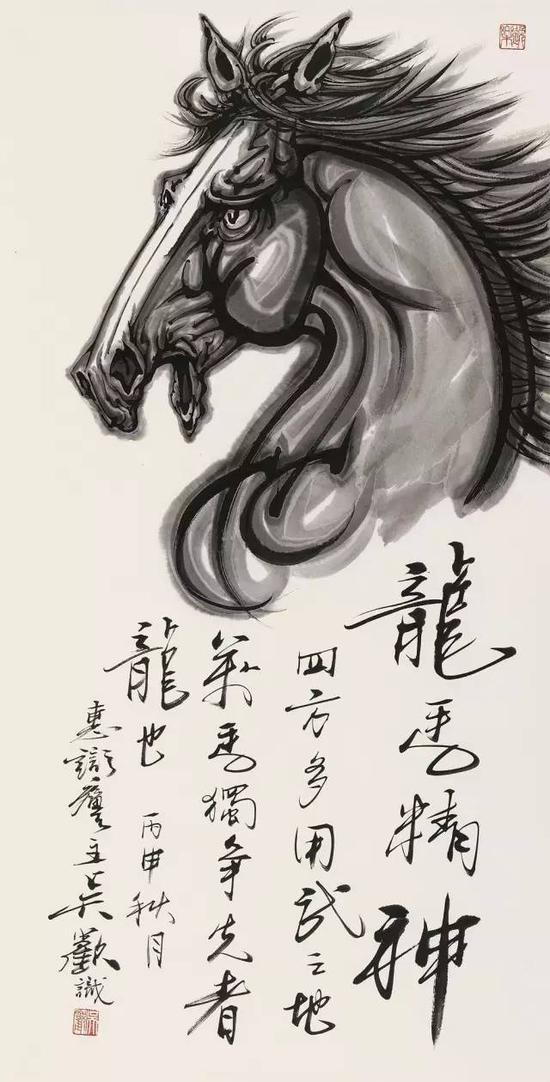 龍馬精神
四方多用武之地
萬馬獨爭先者
龍也 丙申秋月
惠主吳歡識